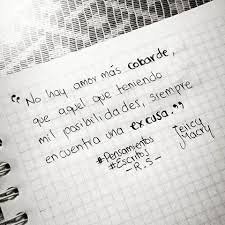 “No hay amor más cobarde,
que aquel que teniendo
mil posibilidades, siempre
encuentra una excusa.”
#Pensamientos
#Escritos
-R.S-